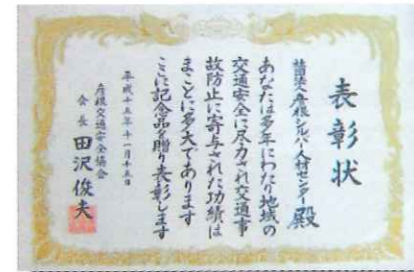 表彰状
社団法人彦根シルバー人材センター殿
あなたは多年にわたり地域の
交通安全に尽力され交通事
故防止に寄与された功績は
まことに多大であります
ここに記念品を贈り表彰します
平成十五年十一月十五日
彦根交通安全協会
会長 田沢俊夫